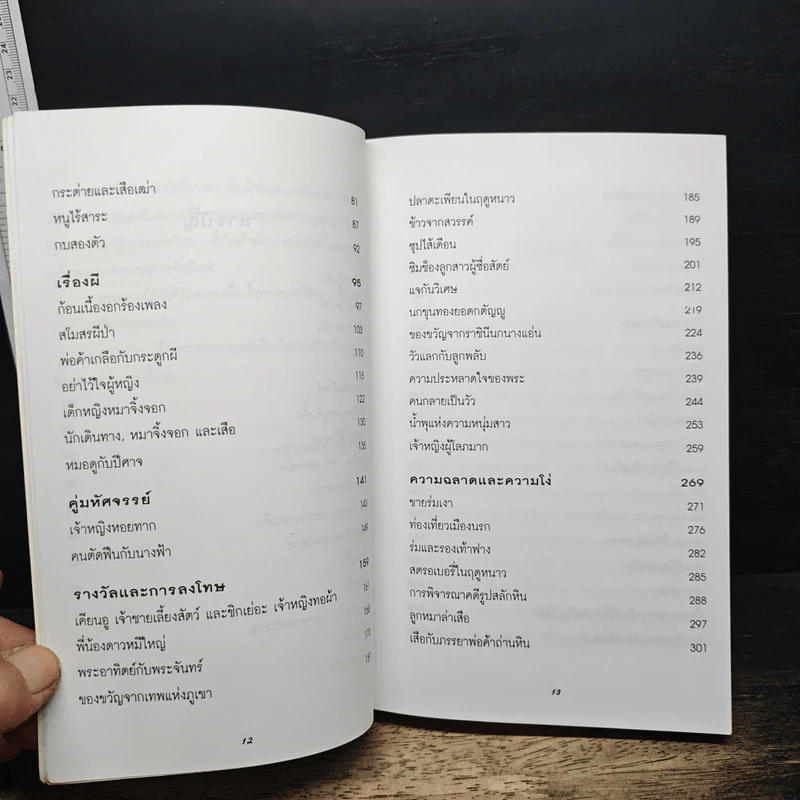 กระต่ายและเสือเฒ่า 81
หนูไร้สาระ 87
กบสองตัว 92
เรื่องผี 95
ก้อนเนื้องอกร้องเพลง 97
สโมสรผีป่า 103
พ่อค้าเกลือกับกระดูกผี 110
อย่าไว้ใจผู้หญิง 115
เด็กหญิงหมาจิ้งจอก 122
นักเดินทาง, หมาจิ้งจอก และเสือ 130
หมอดูกับปีศาจ 135
คู่มหัศจรรย์ 141
เจ้าหญิงหอยทาก 143
คนตัดฟืนกับนางฟ้า 149
รางวัลและการลงโทษ 159
เคียนอู เจ้าชายเลี้ยงสัตว์ และชิกเย่อะ เจ้าหญิงทอผ้า 161
พี่น้องดาวหมีใหญ่ 168
พระอาทิตย์กับพระจันทร์ 170
ของขวัญจากเทพแห่งภูเขา
12
ปลาตะเพียนในฤดูหนาว 185
ข้าวจากสวรรค์ 189
ซุปไส้เดือน 195
ชิมช็องลูกสาวผู้ซื่อสัตย์ 201
แจกันวิเศษ 212
นกขุนทองยอดกตัญญู 219
ของขวัญจากราชินีนกนางแอ่น 224
วัวแลกกับลูกพลับ 236
ความประหลาดใจของพระ 239
คนกลายเป็นวัว 244
น้ำพุแห่งความหนุ่มสาว 253
เจ้าหญิงผู้โลภมาก 259
ความฉลาดและความโง่ 269
ขายร่มเงา 271
ท่องเที่ยวเมืองนรก 276
ร่มและรองเท้าฟาง 282
สตรอเบอรี่ในฤดูหนาว 285
การพิจารณาคดีรูปสลักหิน 288
ลูกหมาล่าเสือ 297
เสือกับภรรยาพ่อค้าถ่านหิน 301
13
22
23
24
25